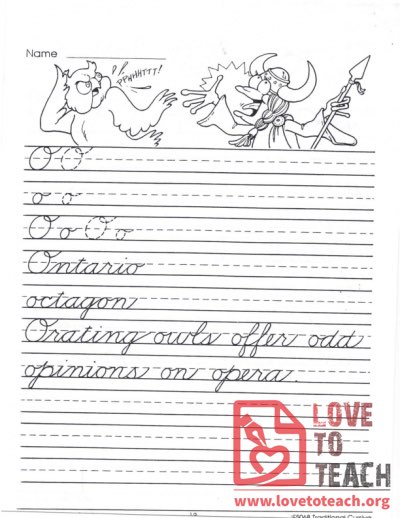 Name
PPHHHTTT!
O O
o o
O o O o
Ontario
octagon
Orating owls offer odd
opinions on opera.
LOVE
TO
TEACH
www.lovetoteach.org
Traditional Cursive